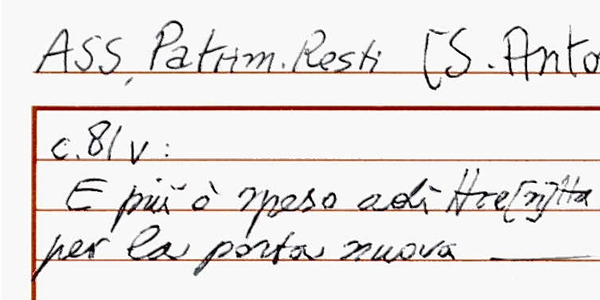 ASS, Patrim. Resti [S. Anto
c. 81 v :
E più ò speso adì tre[n]ta
per la porta nuova